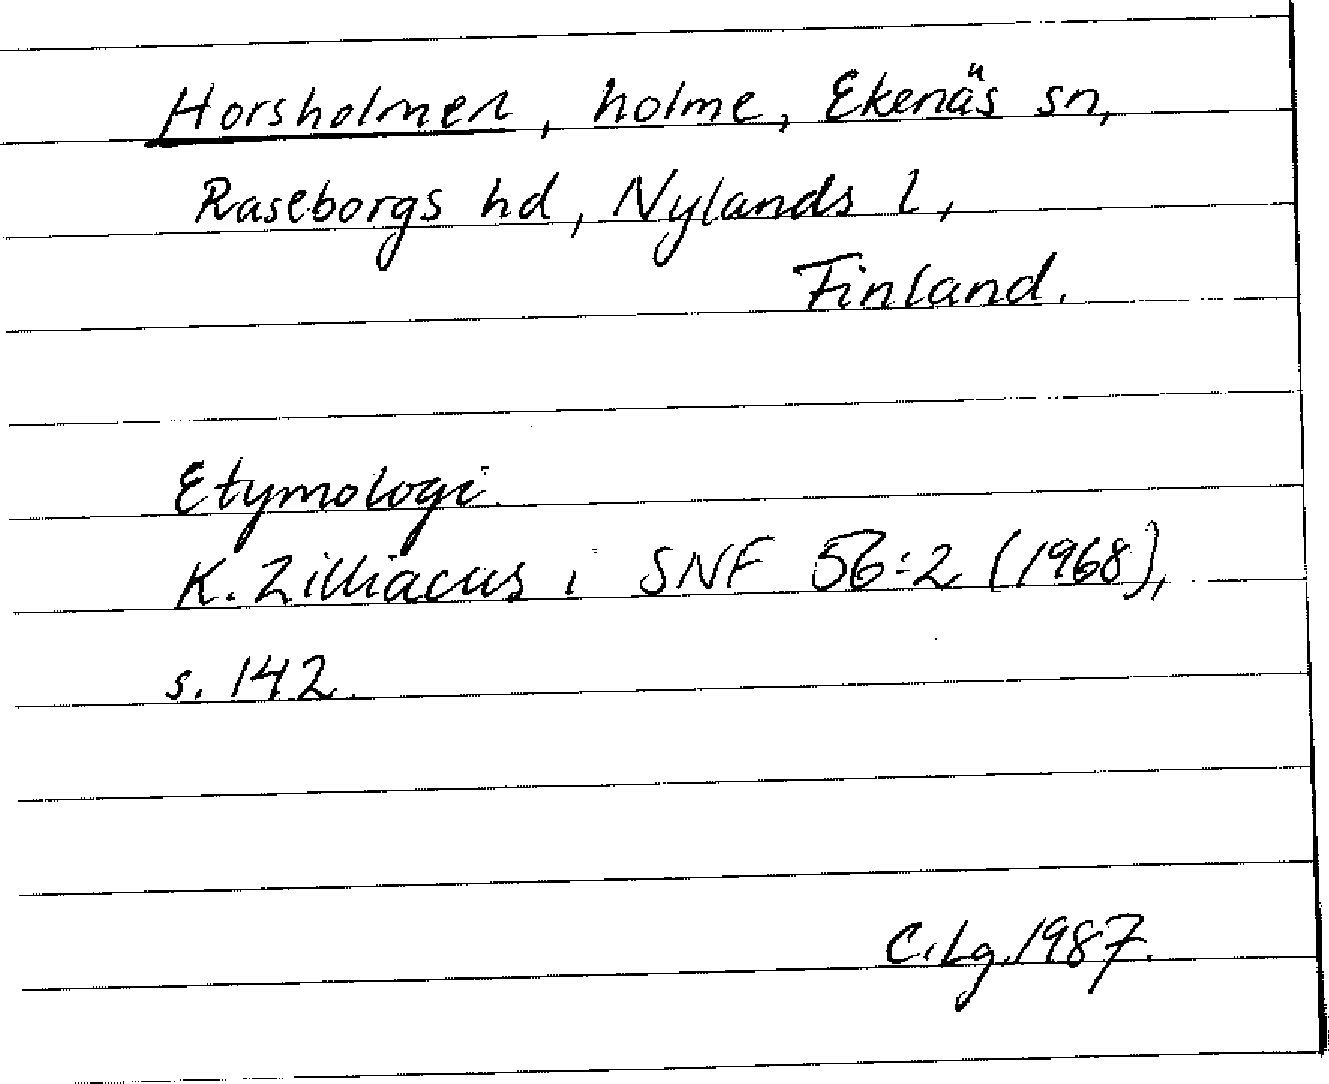 Horsholmen, holme, Ekenäs sn,
Raseborgs hd, Nylands l,
Finland.
Etymologi.
K. Zilliacus i SNF 56:2 (1968),
s. 142.
C.Lg. 1987.